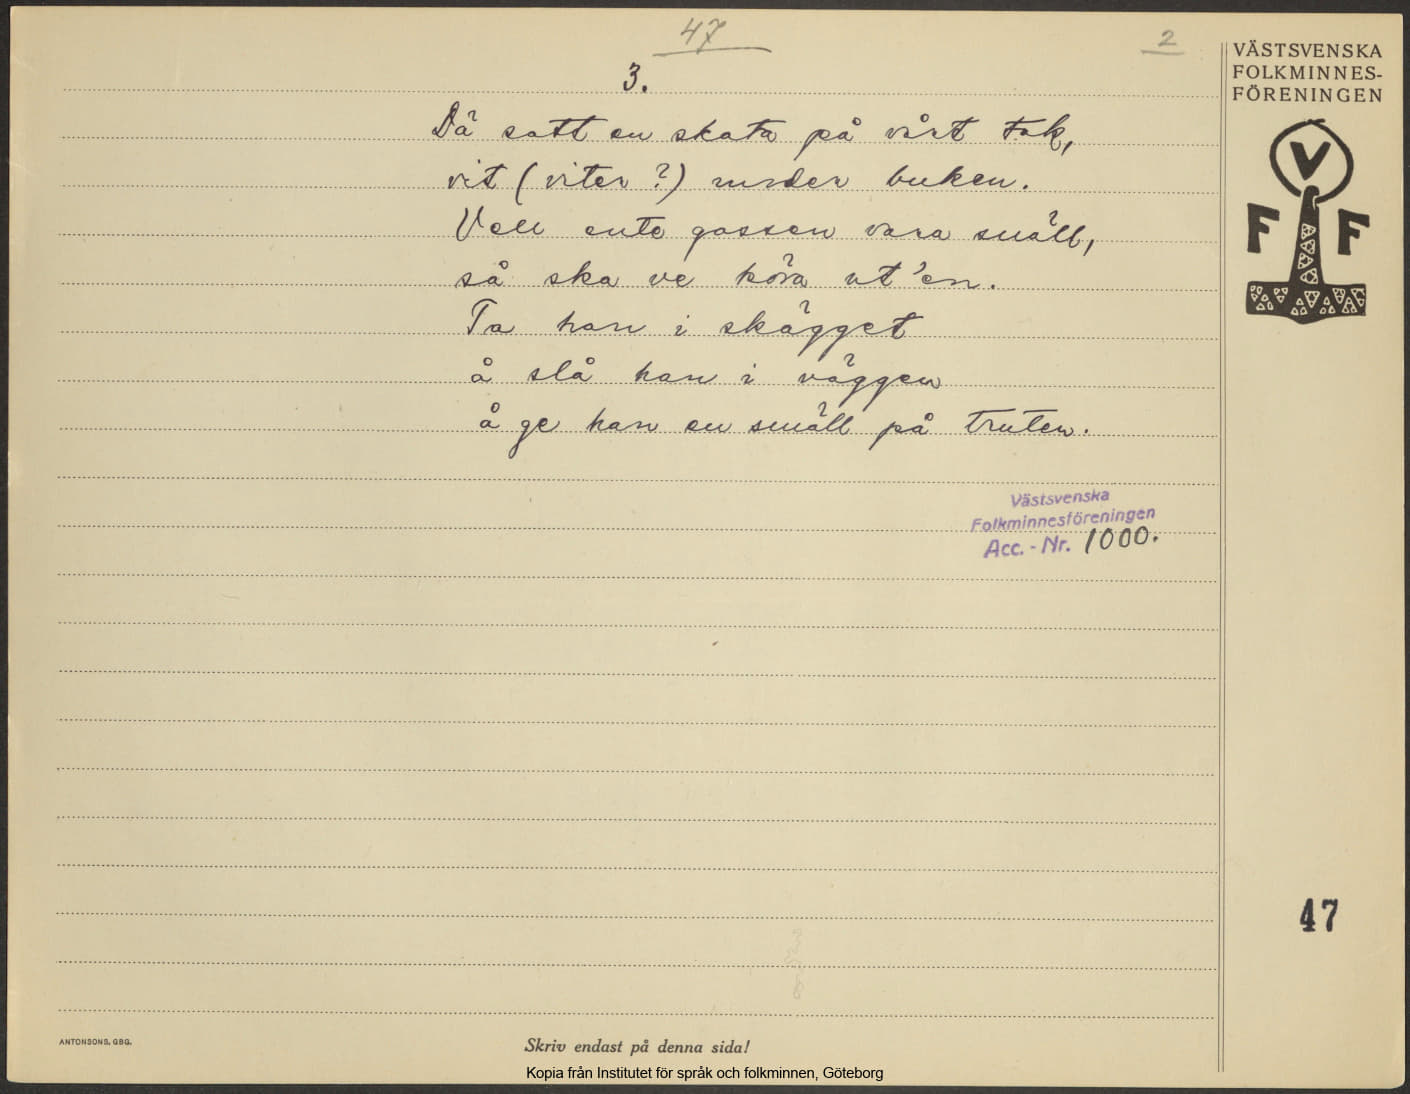 47
2
3.
Dä satt en skata på vårt tak,
vit (viter ?) under buken.
Vell ente gossen vara snäll,
så ska ve köra ut'en.
Ta han i skägget
å slå han i väggen
å ge han en smäll på truten.
VÄSTSVENSKA
FOLKMINNES-
FÖRENINGEN
V
F F
Västsvenska
Folkminnesföreningen
Acc. - Nr. 1000.
47
ANTONSONS, GBG.
Skriv endast på denna sida!
Kopia från Institutet för språk och folkminnen, Göteborg